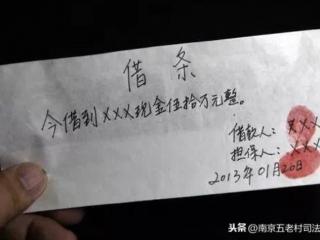 借条
今借到XXX现金伍拾万元整。
借款人：XXX
担保人：XXX
2013年01月20日
头条@南京五老村司法